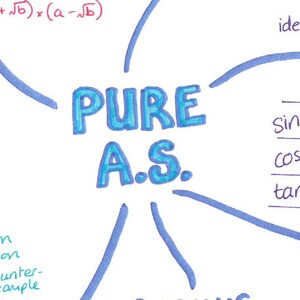 + √b) × (a - √b)
ide
PURE
A.S.
sin
cos
tan
n
on
unter-
xample